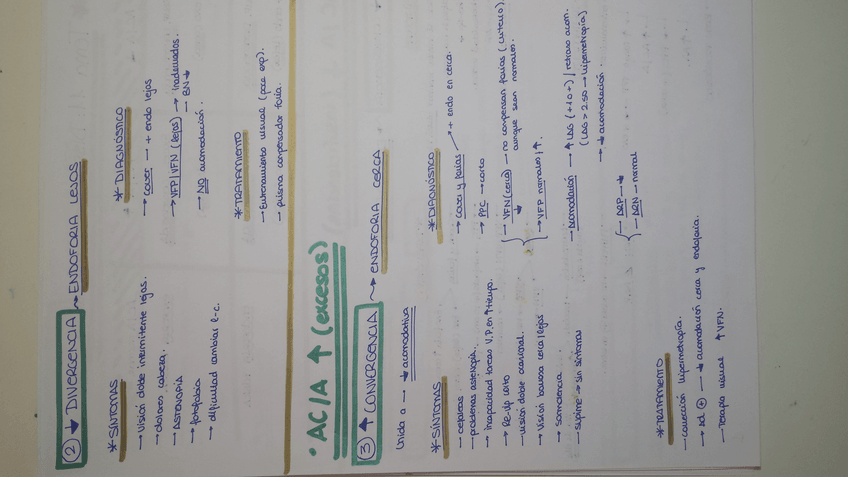 ② ↓ DIVERGENCIA → ENDOFORIA LEJOS
* SÍNTOMAS
→ Visión doble intermitente lejos.
→ dolores cabeza.
→ ASTENOPIA
→ fotofobia
→ dificultad cambiar l-c.
* DIAGNÓSTICO
→ cover → + endo lejos
→ VFP/VFN (lejos) → inadecuados.
→ BN ↓
→ NO acomodación.
* TRATAMIENTO
→ Entrenamiento visual (poca exp).
→ prisma compensador foria.
• ACIA ↑ (excesos)
③ ↑ CONVERGENCIA → ENDOFORIA CERCA
Unida a → ↓ acomodativa
* SÍNTOMAS
→ cefaleas
→ problemas astenopia.
→ incapacidad tareas V.P. en ↑ tiempo.
→ Re-Wp corto
→ visión doble ocasional.
→ Visión borrosa cerca/lejos
→ Somnolencia
→ suprime → sin síntomas
* DIAGNÓSTICO
→ Cover y forias → + endo en cerca.
→ PPC → corto
→ VFN (cerca) → no compensan forias (criterio)
↓ aunque sean normales.
→ VFP normales / ↑.
→ Acomodación → ↑ LAG (+10+) / retraso acom.
(LAG > 2.50 → hipermetropía)
→ ↓ acomodación.
→ ARP → ↓
→ ARN → normal
* TRATAMIENTO
→ corrección hipermetropía.
→ Ad ⊕ → ↓ acomodación cerca y endoforia.
→ Terapia visual ↑ VFN.